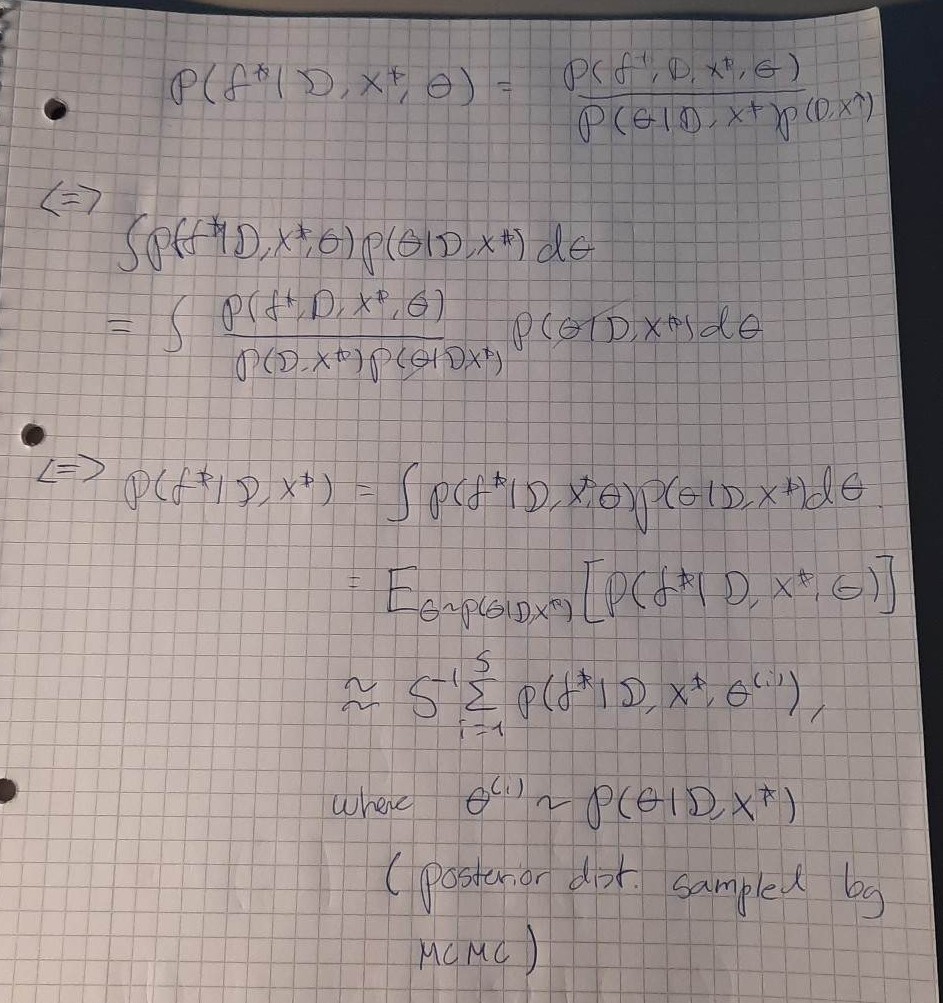 p(f*|D, x*, θ) = p(f*, D, x*, θ) / p(θ|D, x*)p(D, x*)
<=>
∫p(f*|D, x*, θ)p(θ|D, x*) dθ
= ∫ p(f*, D, x*, θ) / p(D, x*)p(θ|D x*) p(θ|D, x*)dθ
<=> p(f*|D, x*) = ∫ p(f*|D, x*, θ)p(θ|D, x*)dθ.
= E_{θ~p(θ|D,x*)}[p(f*|D, x*, θ)]
≈ S^{-1} Σ_{i=1}^{S} p(f*|D, x*, θ^{(i)}),
where θ^{(i)} ~ p(θ|D, x*)
(posterior dist. sampled by
MCMC)